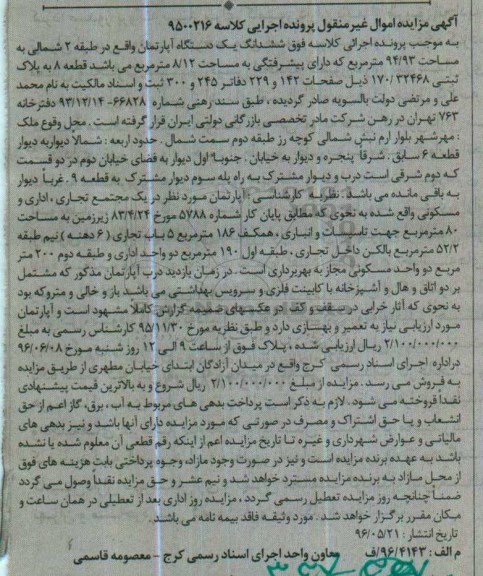 آگهی مزایده اموال غیر منقول پرونده اجرایی کلاسه ۹۵۰۰۲۱۶
به موجب پرونده اجرائی کلاسه فوق ششدانگ یک دستگاه آپارتمان واقع در طبقه ۲ شمالی به
مساحت ۹۴/۹۳ مترمربع که دارای پیشرفتگی به مساحت ۸/۱۲ مترمربع می باشد قطعه ۸ به پلاک
ثبتی ۱۷۰/۳۲۴۶۸ ذیل صفحات ۱۴۲ و ۲۲۹ دفاتر ۲۴۵ و ۳۰۰ ثبت و اسناد مالکیت به نام محمد
علی و مرتضی دولت بالسویه صادر گردیده ، طبق سند رهنی شماره ۶۶۸۲۸-۹۳/۱۲/۱۴ دفترخانه
۷۶۳ تهران در رهن شرکت مادر تخصصی بازرگانی دولتی ایران قرار گرفته است . محل وقوع ملک
: مهرشهر بلوار ارم نبش شمالی کوچه رز طبقه دوم سمت شمال . حدود اربعه : شمالاً دیواریه دیوار
قطعه ۶ سابق . شرقاً پنجره و دیوار به خیابان . جنوباً اول دیوار به فضای خیابان دوم در دو قسمت
که دوم شرقی است درب و دیوار مشترک به راه پله سوم دیوار مشترک به قطعه ۹ . غرباً دیوار
به باقی مانده می باشد . نظریه کارشناسی : آپارتمان مورد نظر در یک مجتمع تجاری ، اداری و
مسکونی واقع شده به نحوی که مطابق پایان کار شماره ۵۷۸۸ مورخ ۸۳/۴/۲۴ زیرزمین به مساحت
۸۰ مترمربع جهت تاسیسات و انباری ، همکف ۱۸۶ مترمربع ۵ باب تجاری ( ۶ دهنه ) نیم طبقه
۵۲/۲ مترمربع بالکن داخل تجاری ، طبقه اول ۱۹۰ مترمربع دو واحد اداری و طبقه دوم ۲۰۰ متر
مربع دو واحد مسکونی مجاز به بهره برداری است . در زمان بازدید درب آپارتمان مذکور که مشتمل
بر دو اتاق و هال و آشپزخانه با کابینت فلزی و سرویس بهداشتی می باشد باز و خالی و متروکه بود
به نحوی که آثار خرابی در سقف و کف در عکسهای ضمیمه گزارش کاملاً مشهود است و آپارتمان
مورد ارزیابی نیاز به تعمیر و بهسازی دارد و طبق نظریه مورخ ۹۵/۱۱/۳۰ کارشناس رسمی به مبلغ
۲/۱۰۰/۰۰۰/۰۰۰ ریال ارزیابی شده ، پلاک فوق از ساعت ۹ الی ۱۲ روز شنبه مورخ ۹۶/۰۶/۰۸
در اداره اجرای اسناد رسمی کرج واقع در میدان آزادگان ابتدای خیابان مطهری از طریق مزایده
به فروش می رسد . مزایده از مبلغ ۲/۱۰۰/۰۰۰/۰۰۰ ریال شروع و به بالاترین قیمت پیشنهادی
نقداً فروخته می شود . لازم به ذکر است پرداخت بدهی های مربوط به آب ، برق، گاز اعم از حق
انشعاب و یا حق اشتراک و مصرف در صورتی که مورد مزایده دارای آنها باشد و نیز بدهی های
مالیاتی و عوارض شهرداری و غیره تا تاریخ مزایده اعم از اینکه رقم قطعی آن معلوم شده یا نشده
باشد به عهده برنده مزایده است و نیز در صورت وجود مازاد، وجوه پرداختی بابت هزینه های فوق
از محل مازاد به برنده مزایده مسترد خواهد شد و نیم عشر و حق مزایده نقداً وصول می گردد
ضمناً چنانچه روز مزایده تعطیل رسمی گردد ، مزایده روز اداری بعد از تعطیلی در همان ساعت و
مکان مقرر برگزار خواهد شد . مورد وثیقه فاقد بیمه نامه می باشد .
تاریخ انتشار : ۹۶/۰۵/۲۱
م الف : ۹۶/۴۱۴۳/ف معاون واحد اجرای اسناد رسمی کرج - معصومه قاسمی